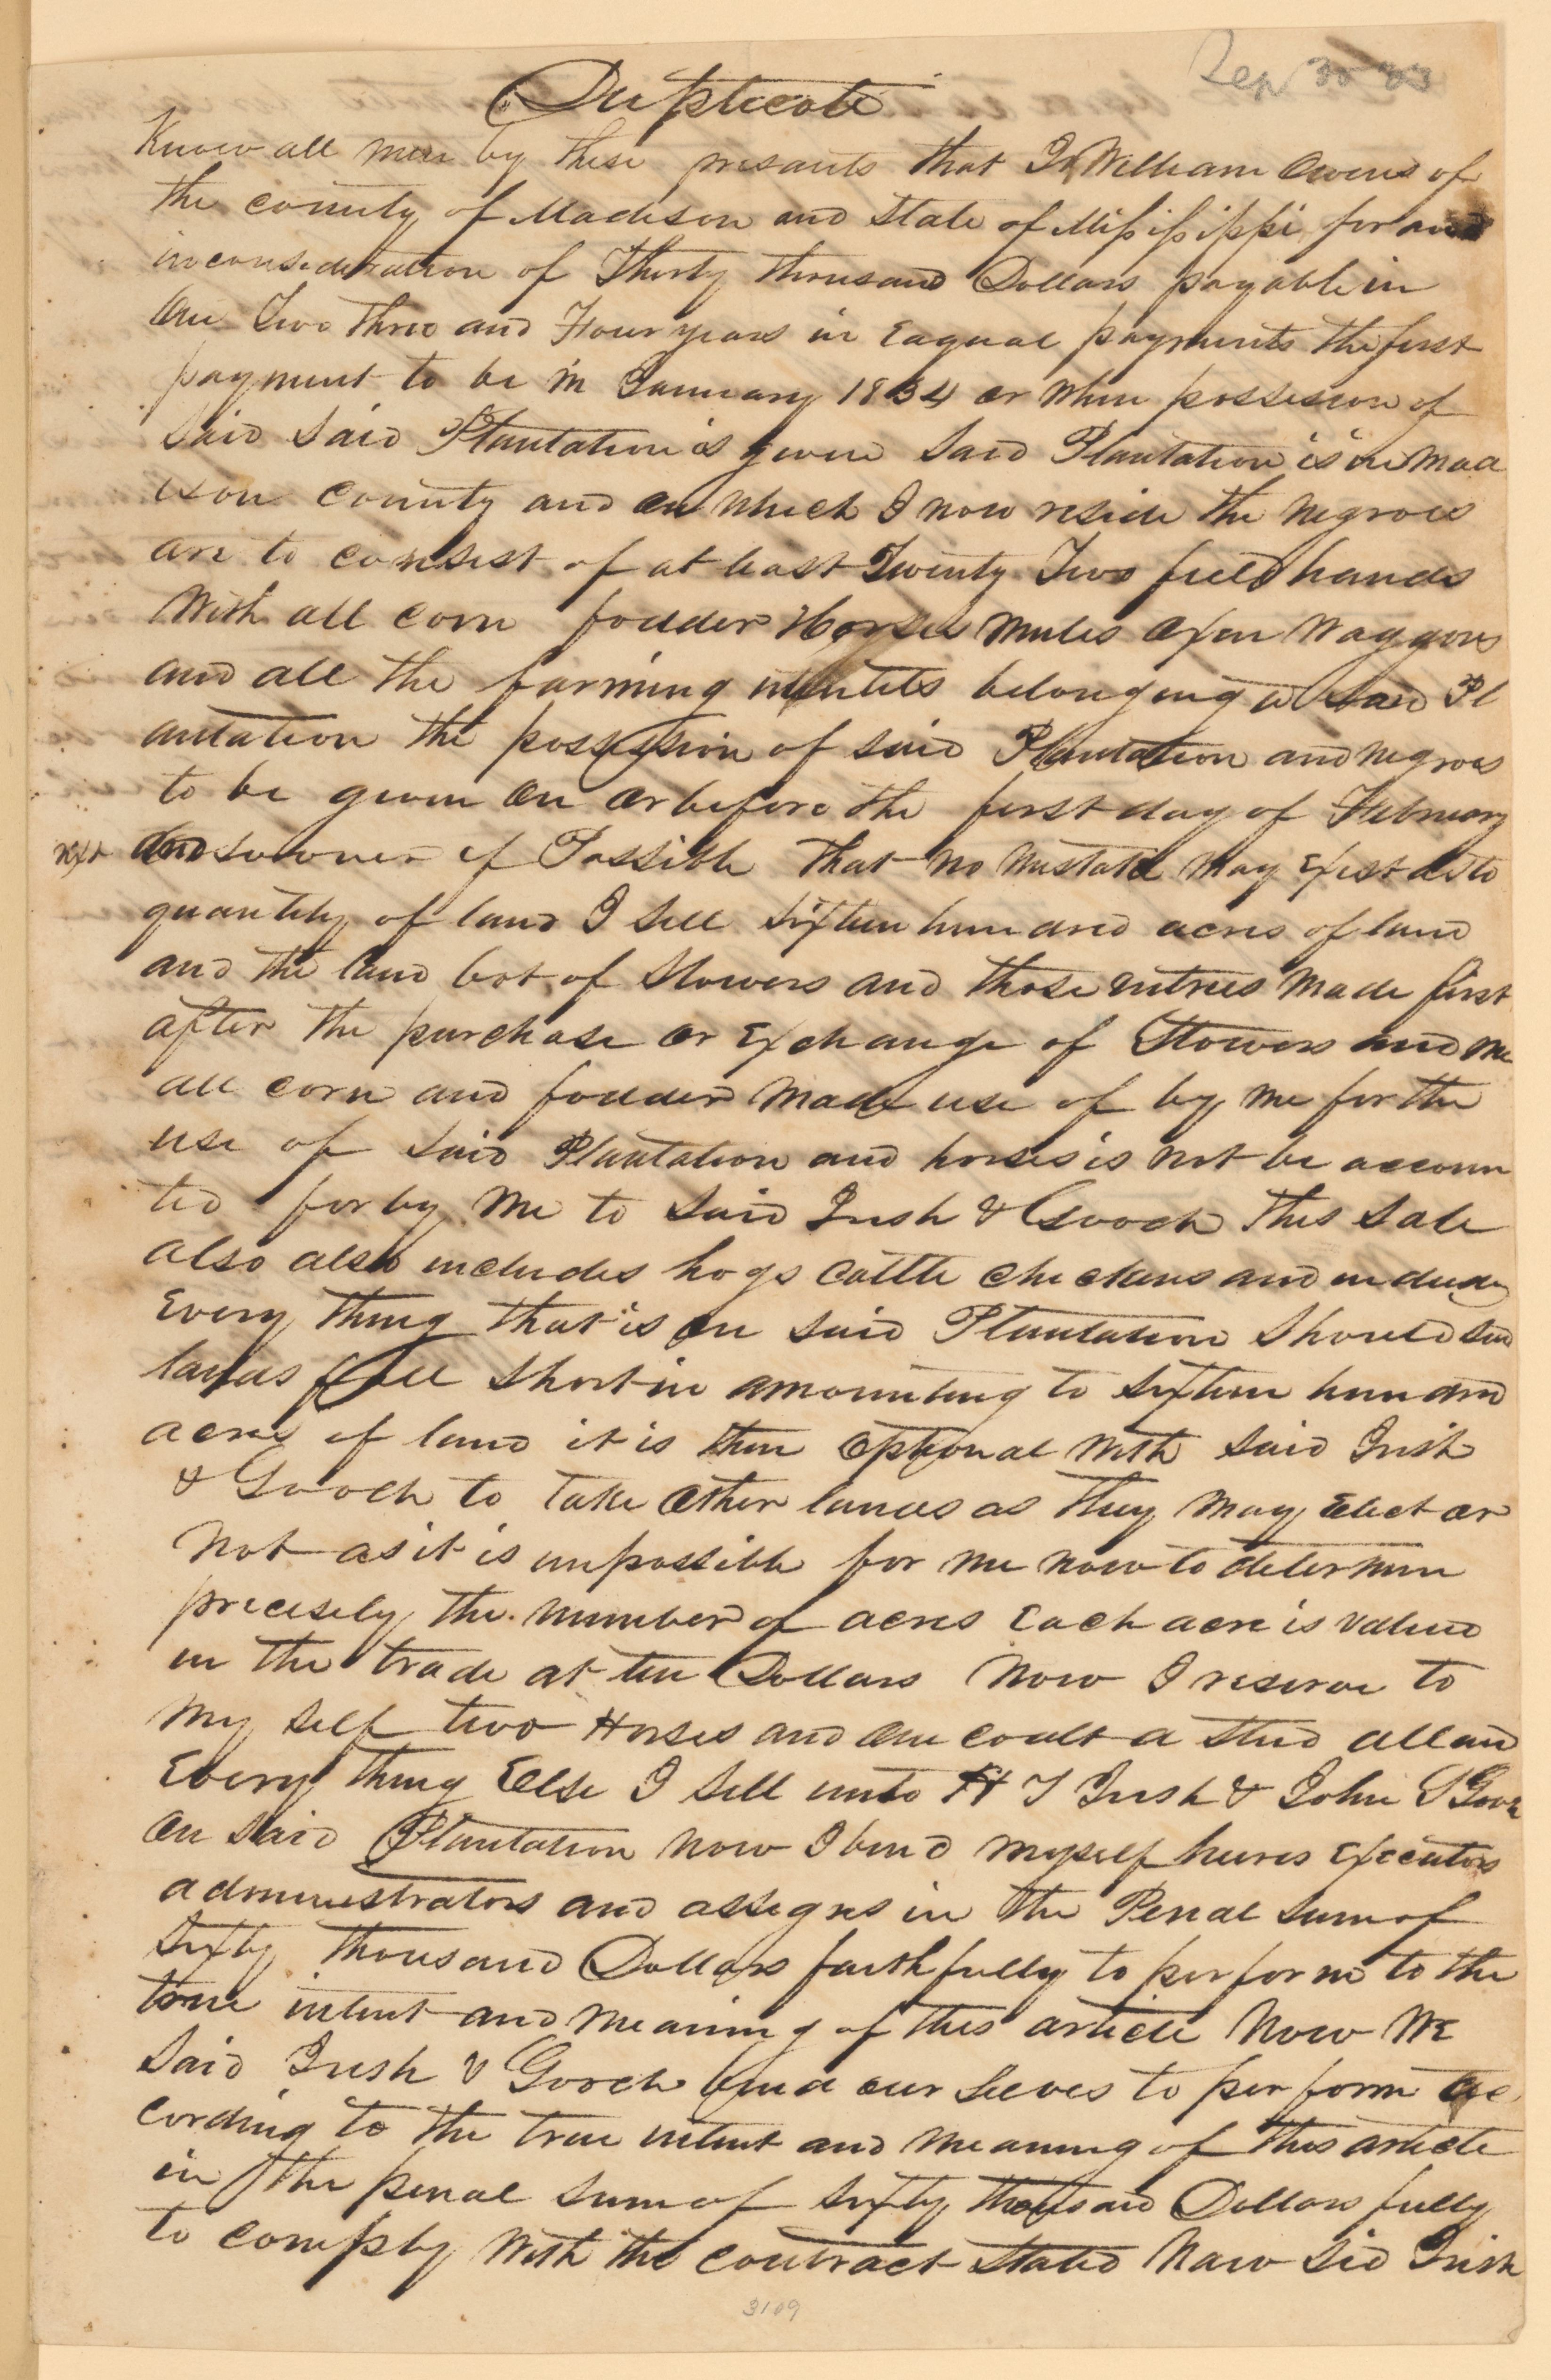 Sep 30 33
Duplicate
Know all men by these presants that I William Owens of
the county of Madison and state of Mississippi for and
inconsideration of Thirty thousand Dollars payable in
One Two Three and Four years in Eaqual payments the first
payment to be in January 1834 or when possession of
said said Plantation is given said Plantation is in Mad
ison county and on which I now reside the negroes
are to consist of at least Twenty Two field hands
With all corn fodder Horses Mules Oxen Waggons
and all the farming utentils belonging to said Pl
antation the possession of said Plantation and negroes
to be given on or before the first day of February
next and sooner if Possible that no mistake may Exist as to
quantity of land I sell sixteen hundred acres of land
and the land bot of Stowers and those entries made first
after the purchase or Exchange of Stowers and me
all corn and fodder made use of by me for the
use of said Plantation and horses is not be accoun
ted for by me to said Irish & Gooch This sale
also also includes hogs cattle chickens and
Every thing that is on said Plantation should said
lands fall short in amounting to sixteen hundred
acres of land it is then optional with said Irish
& Gooch to take other lands as they may Elect or
not as it is impossible for me now to determine
precisely the number of acres Each acre is valued
in the trade at ten Dollars Now I reserve to
my self two Horses and one coult a stud all and
Every thing Else I sell unto H T Irish & John S Gooch
on said Plantation now I bind myself heires Executors
administrators and assigns in the Penal sum of
sixty thousand Dollars faithfully to perform to the
true intent and meaning of this article Now We
said Irish & Gooch bind our selves to perform ac
cording to the true intent and meaning of this article
in the penal sum of sixty thousand Dollars fully
to comply with the contract stated Now sid Irish
3109